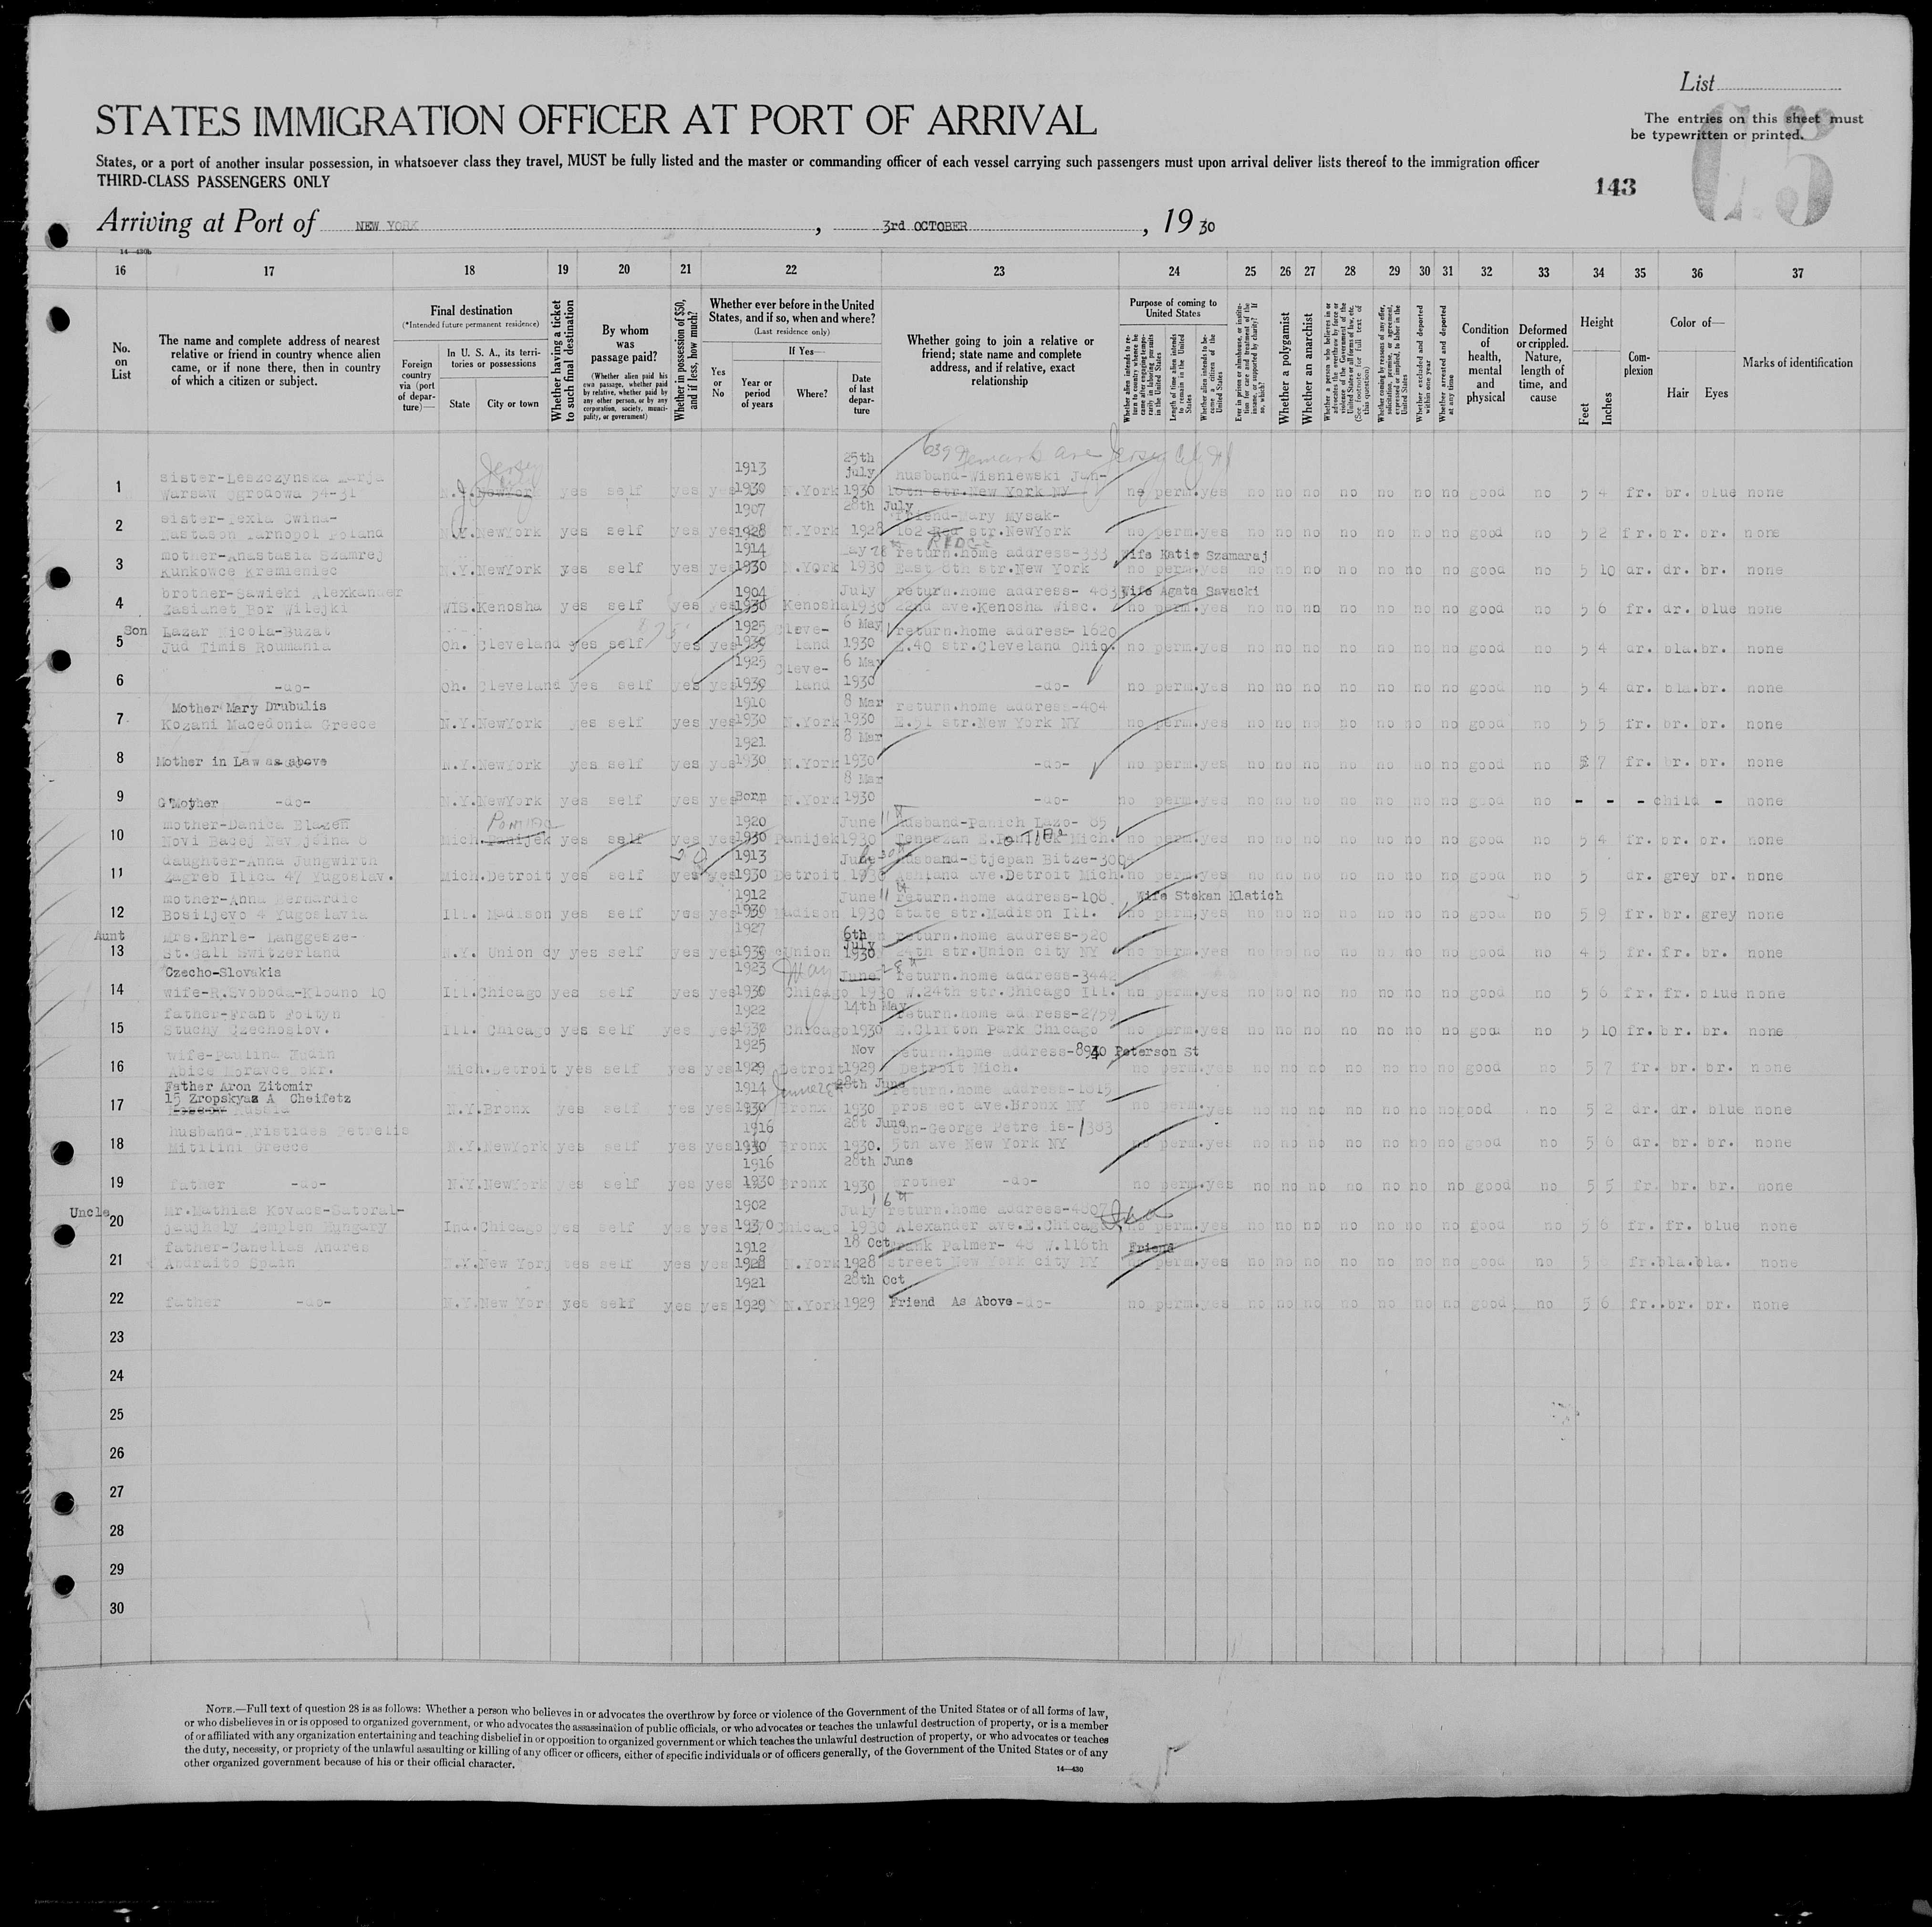 List
The entries on this sheet must
be typewritten or printed.
C5
STATES IMMIGRATION OFFICER AT PORT OF ARRIVAL
States, or a port of another insular possession, in whatsoever class they travel, MUST be fully listed and the master or commanding officer of each vessel carrying such passengers must upon arrival deliver lists thereof to the immigration officer
THIRD-CLASS PASSENGERS ONLY
143
Arriving at Port of NEW YORK, 3rd OCTOBER, 1930
14—430b
16 17 18 19 20 21 22 23 24 25 26 27 28 29 30 31 32 33 34 35 36 37
No. on List
The name and complete address of nearest relative or friend in country whence alien came, or if none there, then in country of which a citizen or subject.
Final destination
(*Intended future permanent residence)
Foreign country via (port of departure)—
In U. S. A., its territories or possessions
State
City or town
Whether having a ticket to such final destination
By whom was passage paid?
(Whether alien paid his own passage, whether paid by relative, whether paid by any other person, or by any corporation, society, municipality, or government)
Whether in possession of $50, and if less, how much?
Whether ever before in the United States, and if so, when and where?
(Last residence only)
If Yes—
Yes or No
Year or period of years
Where?
Date of last departure
Whether going to join a relative or friend; state name and complete address, and if relative, exact relationship
Purpose of coming to United States
Whether alien intends to return to country whence he came after engaging temporarily in laboring pursuits in the United States
Length of time alien intends to remain in the United States
Whether alien intends to become a citizen of the United States
Ever in prison or almshouse, or institution for care and treatment of the insane, or supported by charity? If so, which?
Whether a polygamist
Whether an anarchist
Whether a person who believes in or advocates the overthrow by force or violence of the Government of the United States or all forms of law, etc. (See footnote for full text of this question)
Whether coming by reasons of any offer, solicitation, promise, or agreement, expressed or implied, to labor in the United States
Whether excluded and deported within one year
Whether arrested and deported at any time
Condition of health, mental and physical
Deformed or crippled. Nature, length of time, and cause
Height
Feet
Inches
Complexion
Color of—
Hair
Eyes
Marks of identification
Jersey
Jersey
25th
1913 july husband-Wisniewski Jan-
sister-Leszczynska Marja
1 Warsaw Ogrodowa 54-31 N.J. NewYork yes self yes yes 1930 N.York 1930 str.New York NY no perm. yes no no no no no no no good no 5 4 fr. br. blue none
1907 28th July
friend-Mary Mysak-
2 Tarnopol Poland N.Y. NewYork yes self yes yes 1928 N.York 1928 162 str.NewYork no perm. yes no no no no no no no good no 5 2 fr. br. br. none
RIDGE
mother-Anastasia Szamrej 1914 return.home address-333 Wife Katie Szamaraj
3 Kunkowce Kremieniec N.Y. NewYork yes self yes yes 1930 N.York 1930 East 8th str.New York no perm. yes no no no no no no no good no 5 10 dr. dr. br. none
brother-Sawicki Alexkander 1904 July return.home address- 4033 Wife Agata Savacki
4 WIS. Kenosha yes self yes yes 1930 Kenosha 1930 22nd ave.Kenosha Wisc. no perm. yes no no no no no no no good no 5 6 fr. dr. blue none
Son Lazar Nicola-Buzat 1925 Cleve- 6 May return.home address- 1620
5 Jud Timis Roumania Oh. Cleveland yes self yes yes 1930 land 1930 E.40 str.Cleveland Ohio. no perm. yes no no no no no no no good no 5 4 dr. bla. br. none
1925 Cleve- 6 May
6 -do- Oh. Cleveland yes self yes yes 1930 land 1930 -do- no perm. yes no no no no no no no good no 5 4 dr. bla. br. none
Mother Mary Drubulis 1910 8 Mar return.home address-404
7 Kozani Macedonia Greece N.Y. NewYork yes self yes yes 1930 N.York 1930 E.51 str.New York NY no perm. yes no no no no no no no good no 5 5 fr. br. br. none
1921 8 Mar
8 Mother in Law as above N.Y. NewYork yes self yes yes 1930 N.York 1930 -do- no perm. yes no no no no no no no good no 7 fr. br. br. none
8 Mar
9 G'Mother -do- N.Y. NewYork yes self yes yes Born N.York 1930 -do- no perm. yes no no no no no no no good no - - - child - none
Pontiac
mother-Danica Blazen 1920 June 11th husband-Panich Lazo- 85
10 Novi Becej Mich. Panijek yes self yes yes 1930 Panijek 1930 no perm. yes no no no no no no no good no 5 4 fr. br. br. none
daughter-Anna Jungwirth 1913 June husband-Stjepan Bitze-3004
11 Zagreb Ilica 47 Yugoslav. Mich. Detroit yes self yes yes 1930 Detroit 1930 Ashland ave.Detroit Mich. no perm. yes no no no no no no no good no 5 dr. grey br. none
mother-Anna Bernardic 1912 June 11th return.home address-108 Wife Stekan Klatich
12 Bosiljevo 4 Yugoslavia Ill. Madison yes self yes yes 1930 Madison 1930 state str.Madison Ill. no perm. yes no no no no no no no good no 5 9 fr. br. grey none
Aunt Mrs.Ehrle- Langgesze- 1927 6th return.home address-520
13 St.Gall Switzerland N.Y. Union cy yes self yes yes 1930 Union July 1930 24th str.Union city NY no perm. yes no no no no no no no good no 4 5 fr. fr. br. none
Czecho-Slovakia 1923 May June 28th return.home address-3442
14 wife-R.Svoboda-Klouno 10 Ill. Chicago yes self yes yes 1930 Chicago 1930 W.24th str.Chicago Ill. no perm. yes no no no no no no no good no 5 6 fr. fr. blue none
father-Frant Foltyn 1922 14th May return.home address-2759
15 Stuchy Czechoslov. Ill. Chicago yes self yes yes 1930 Chicago 1930 E.Clifton Park Chicago no perm. yes no no no no no no no good no 5 10 fr. br. br. none
wife-Paulina Hudin 1925 Nov return.home address-8940 Peterson St
16 Mich. Detroit yes self yes yes 1929 Detroit 1929 Detroit Mich. no perm. yes no no no no no no no good no 5 7 fr. br. br. none
Father Aron Zitomir 1914 28th June return.home address-1815
15 Zropskyaz A Cheifetz
17 Russia N.Y. Bronx yes self yes yes 1930 Bronx 1930 prospect ave.Bronx NY no perm. yes no no no no no no no good no 5 2 dr. dr. blue none
husband-Aristides Petrelis 1916 28t June son-George Petrelis-1383
18 Mitilini Greece N.Y. NewYork yes self yes yes 1930 Bronx 1930. 5th ave New York NY no perm. yes no no no no no no no good no 5 6 dr. br. br. none
1916 28th June
19 father -do- N.Y. NewYork yes self yes yes 1930 Bronx 1930 brother -do- no perm. yes no no no no no no no good no 5 5 fr. br. br. none
Uncle Mr.Mathias Kovacs-Satoral- 1902 July 16th return.home address-4807
20 jaujhely Zemplen Hungary Ind. Chicago yes self yes yes 1930 Chicago 1930 Alexander ave.E.Chicago Ind no perm. yes no no no no no no no good no 5 6 fr. fr. blue none
father-Canellas Andres 1912 18 Oct Frank Palmer- 48 W.116th Friend
21 Andraito Spain N.Y. New York yes self yes yes 1928 N.York 1928 street New York city NY no perm. yes no no no no no no no good no 5 fr. bla. bla. none
1921 28th Oct
22 father -do- N.Y. New Yor yes self yes yes 1929 N.York 1929 Friend As Above -do- no perm. yes no no no no no no no good no 5 6 fr. br. br. none
23
24
25
26
27
28
29
30
NOTE.—Full text of question 28 is as follows: Whether a person who believes in or advocates the overthrow by force or violence of the Government of the United States or of all forms of law,
or who disbelieves in or is opposed to organized government, or who advocates the assassination of public officials, or who advocates or teaches the unlawful destruction of property, or is a member
of or affiliated with any organization entertaining and teaching disbelief in or opposition to organized government or which teaches the unlawful destruction of property, or who advocates or teaches
the duty, necessity, or propriety of the unlawful assaulting or killing of any officer or officers, either of specific individuals or of officers generally, of the Government of the United States or of any
other organized government because of his or their official character.
14—430